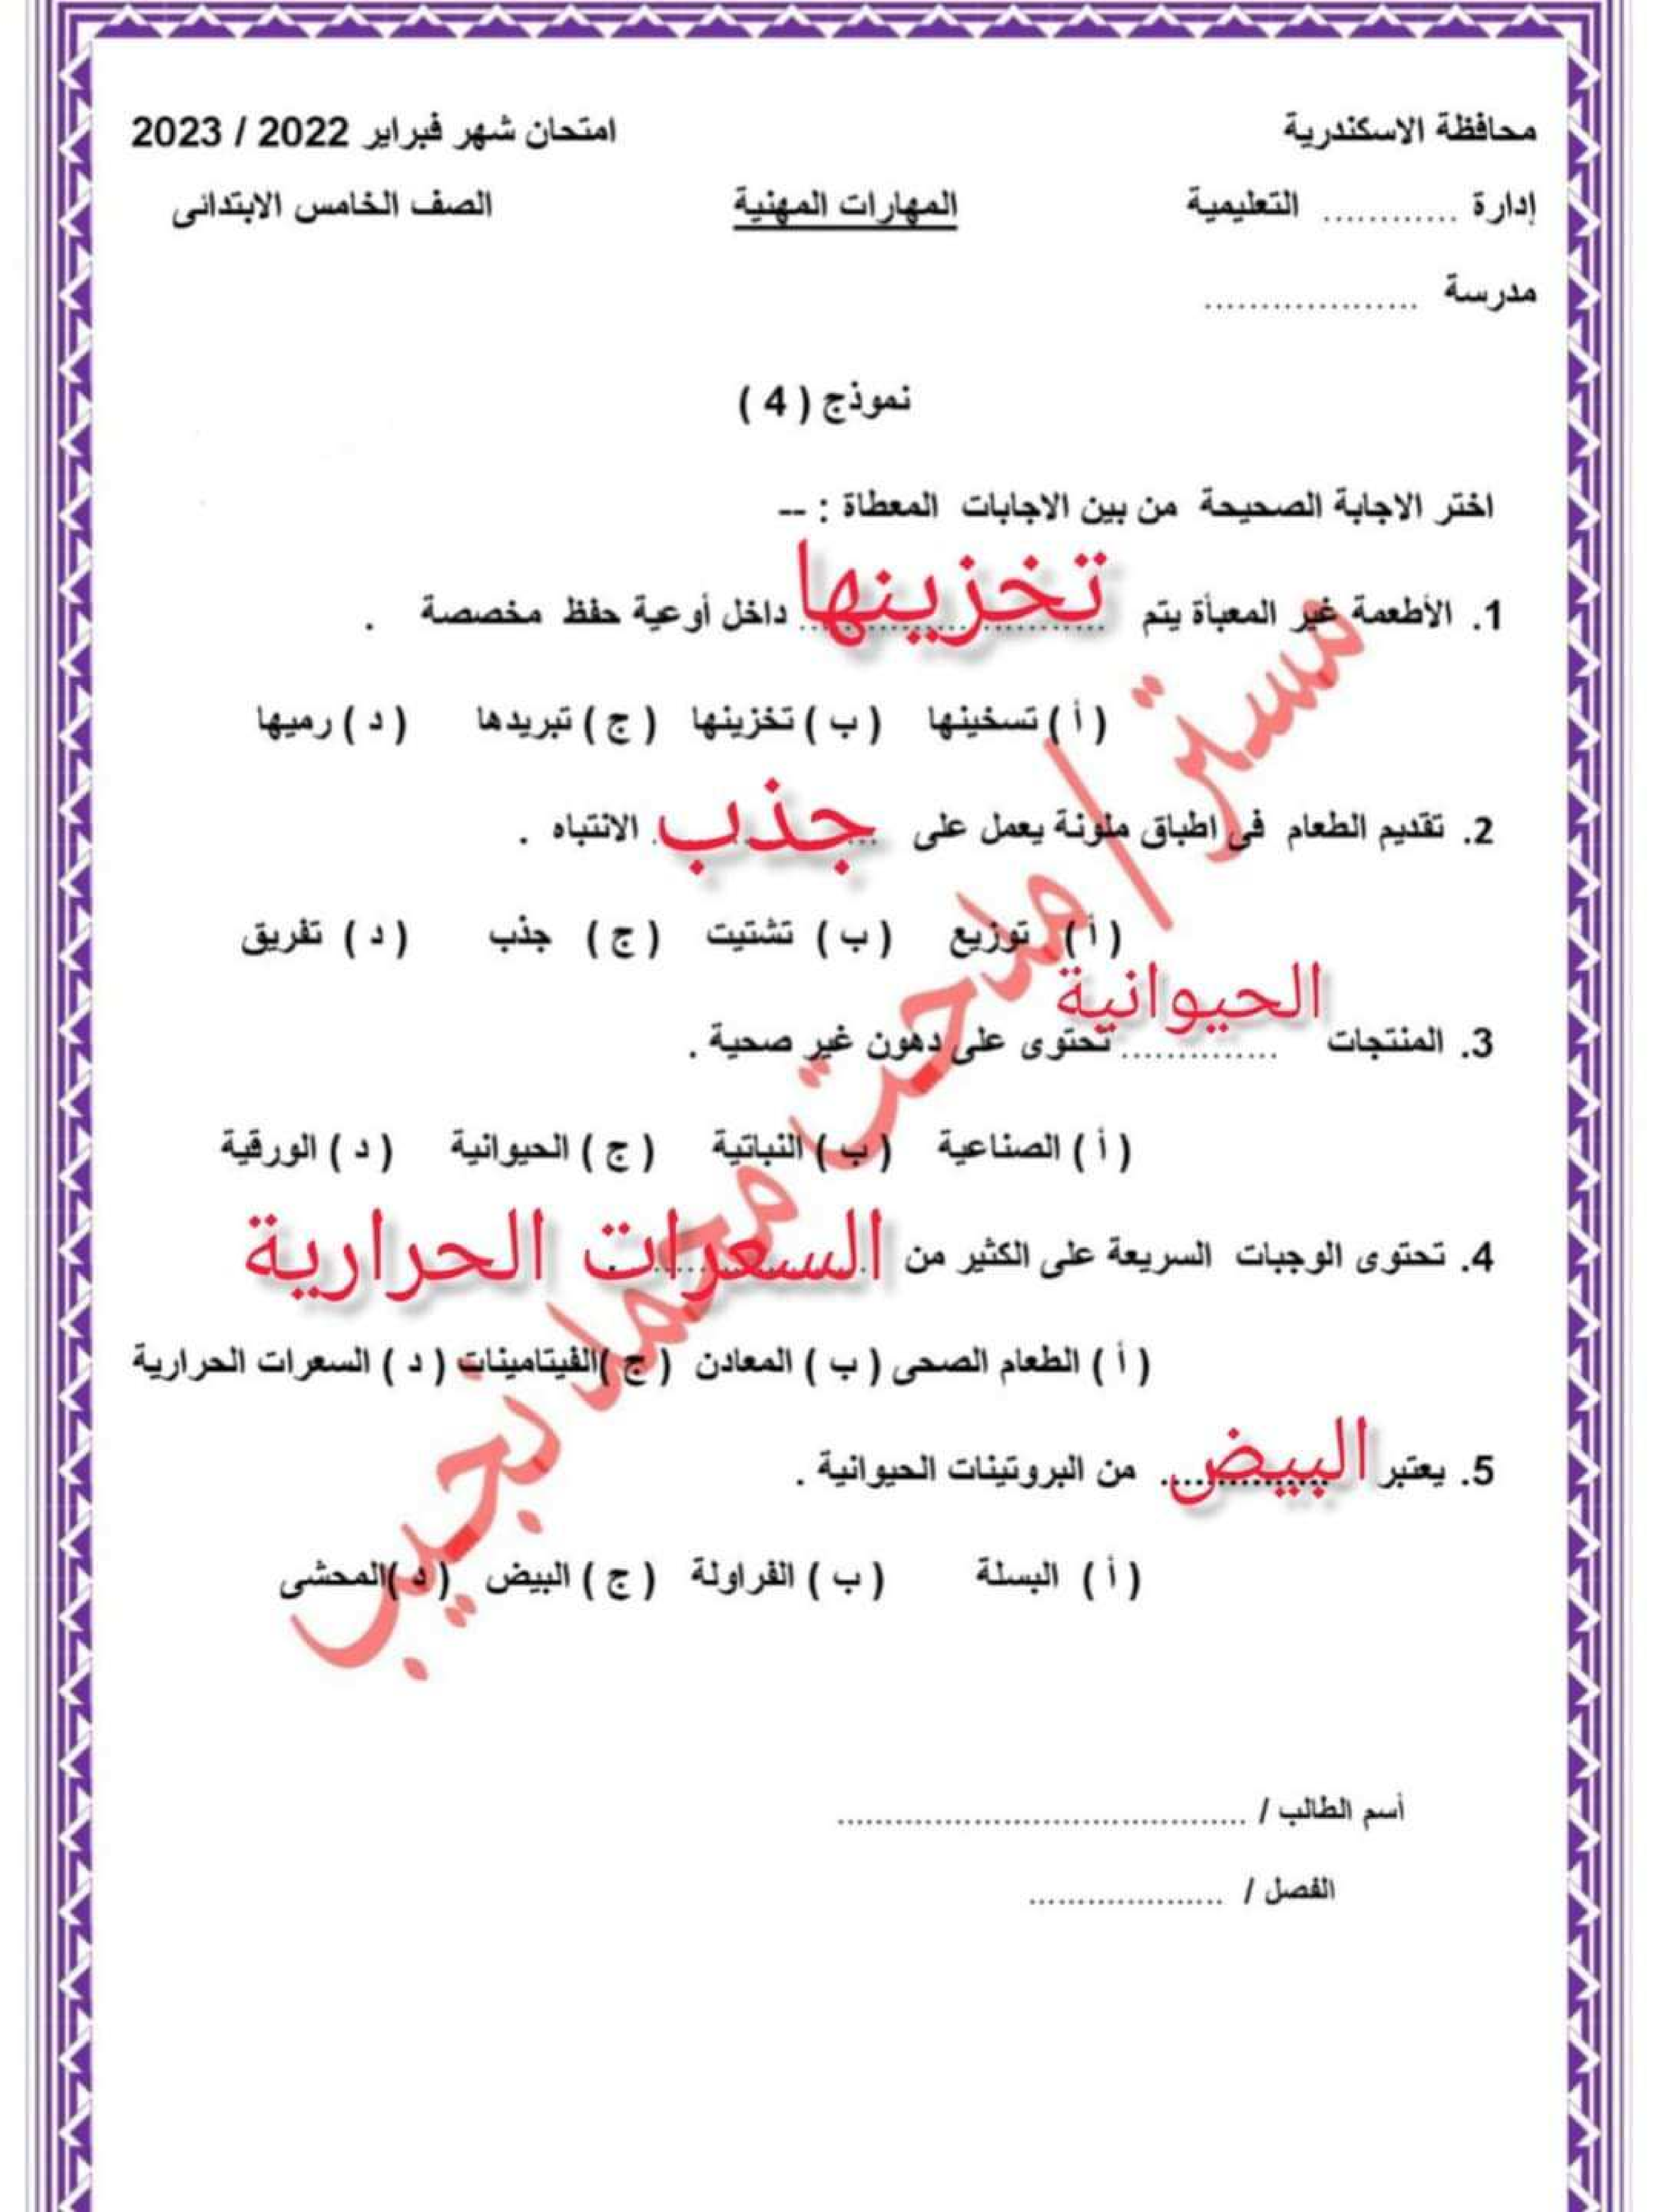 محافظة الاسكندرية امتحان شهر فبراير 2022 / 2023
إدارة ............ التعليمية المهارات المهنية الصف الخامس الابتدائى
مدرسة ...................
نموذج ( 4 )
اختر الاجابة الصحيحة من بين الاجابات المعطاة : --
1. الأطعمة غير المعبأة يتم تخزينها داخل أوعية حفظ مخصصة .
( أ ) تسخينها ( ب ) تخزينها ( ج ) تبريدها ( د ) رميها
2. تقديم الطعام فى اطباق ملونة يعمل على جذب الانتباه .
( أ ) توزيع ( ب ) تشتيت ( ج ) جذب ( د ) تفريق
3. المنتجات الحيوانية تحتوى على دهون غير صحية .
( أ ) الصناعية ( ب ) النباتية ( ج ) الحيوانية ( د ) الورقية
4. تحتوى الوجبات السريعة على الكثير من السعرات الحرارية .
( أ ) الطعام الصحى ( ب ) المعادن ( ج )الفيتامينات ( د ) السعرات الحرارية
5. يعتبر البيض من البروتينات الحيوانية .
( أ ) البسلة ( ب ) الفراولة ( ج ) البيض ( د )المحشى
مستر / مدحت محمد نجيب
أسم الطالب / .........................................
الفصل / ....................